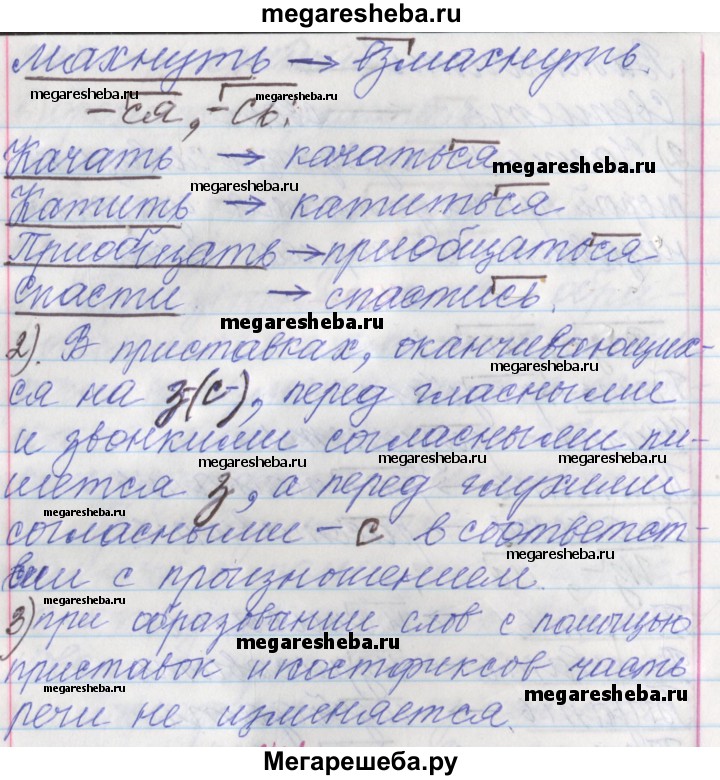 megaresheba.ru
Махнуть → взмахнуть.
megaresheba.ru megaresheba.ru
-ся, -сь:
Качать → качаться
megaresheba.ru
megaresheba.ru
Катить → катиться
Приобщать → приобщаться
Спасти → спастись.
megaresheba.ru
2). В приставках, оканчивающих-
ся на з-(с-), перед гласными
и звонкими согласными пи-
megaresheba.ru megaresheba.ru
шется з, а перед глухими
согласными – с в соответст-
megaresheba.ru
вии с произношением.
megaresheba.ru
3) при образовании слов с помощью
megaresheba.ru
приставок и постфиксов часть
megaresheba.ru megaresheba.ru
речи не изменяется.
Мегарешеба.ру